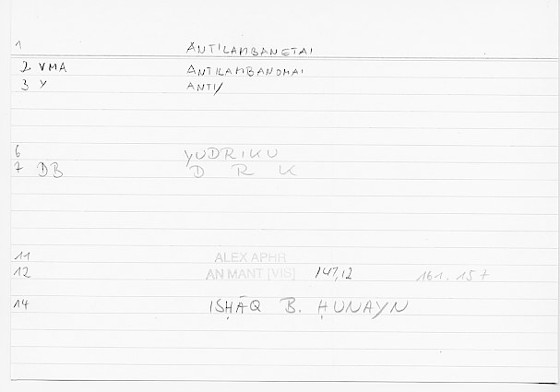 1 ANTILAMBANETAI
2 VMA ANTILAMBANOMAI
3 Y ANTI/
6 YUDRIKU
7 DB D R K
11 ALEX APHR
12 AN MANT [VIS] 147,12 161. 15 +
14 ISḤĀQ B. ḤUNAYN